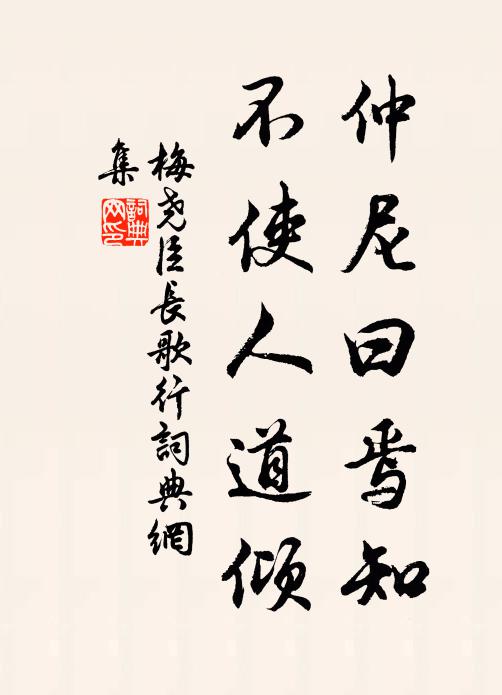 仲尼曰焉知
不使人道傾
梅堯臣長歌行詞典網
集
詞典网印